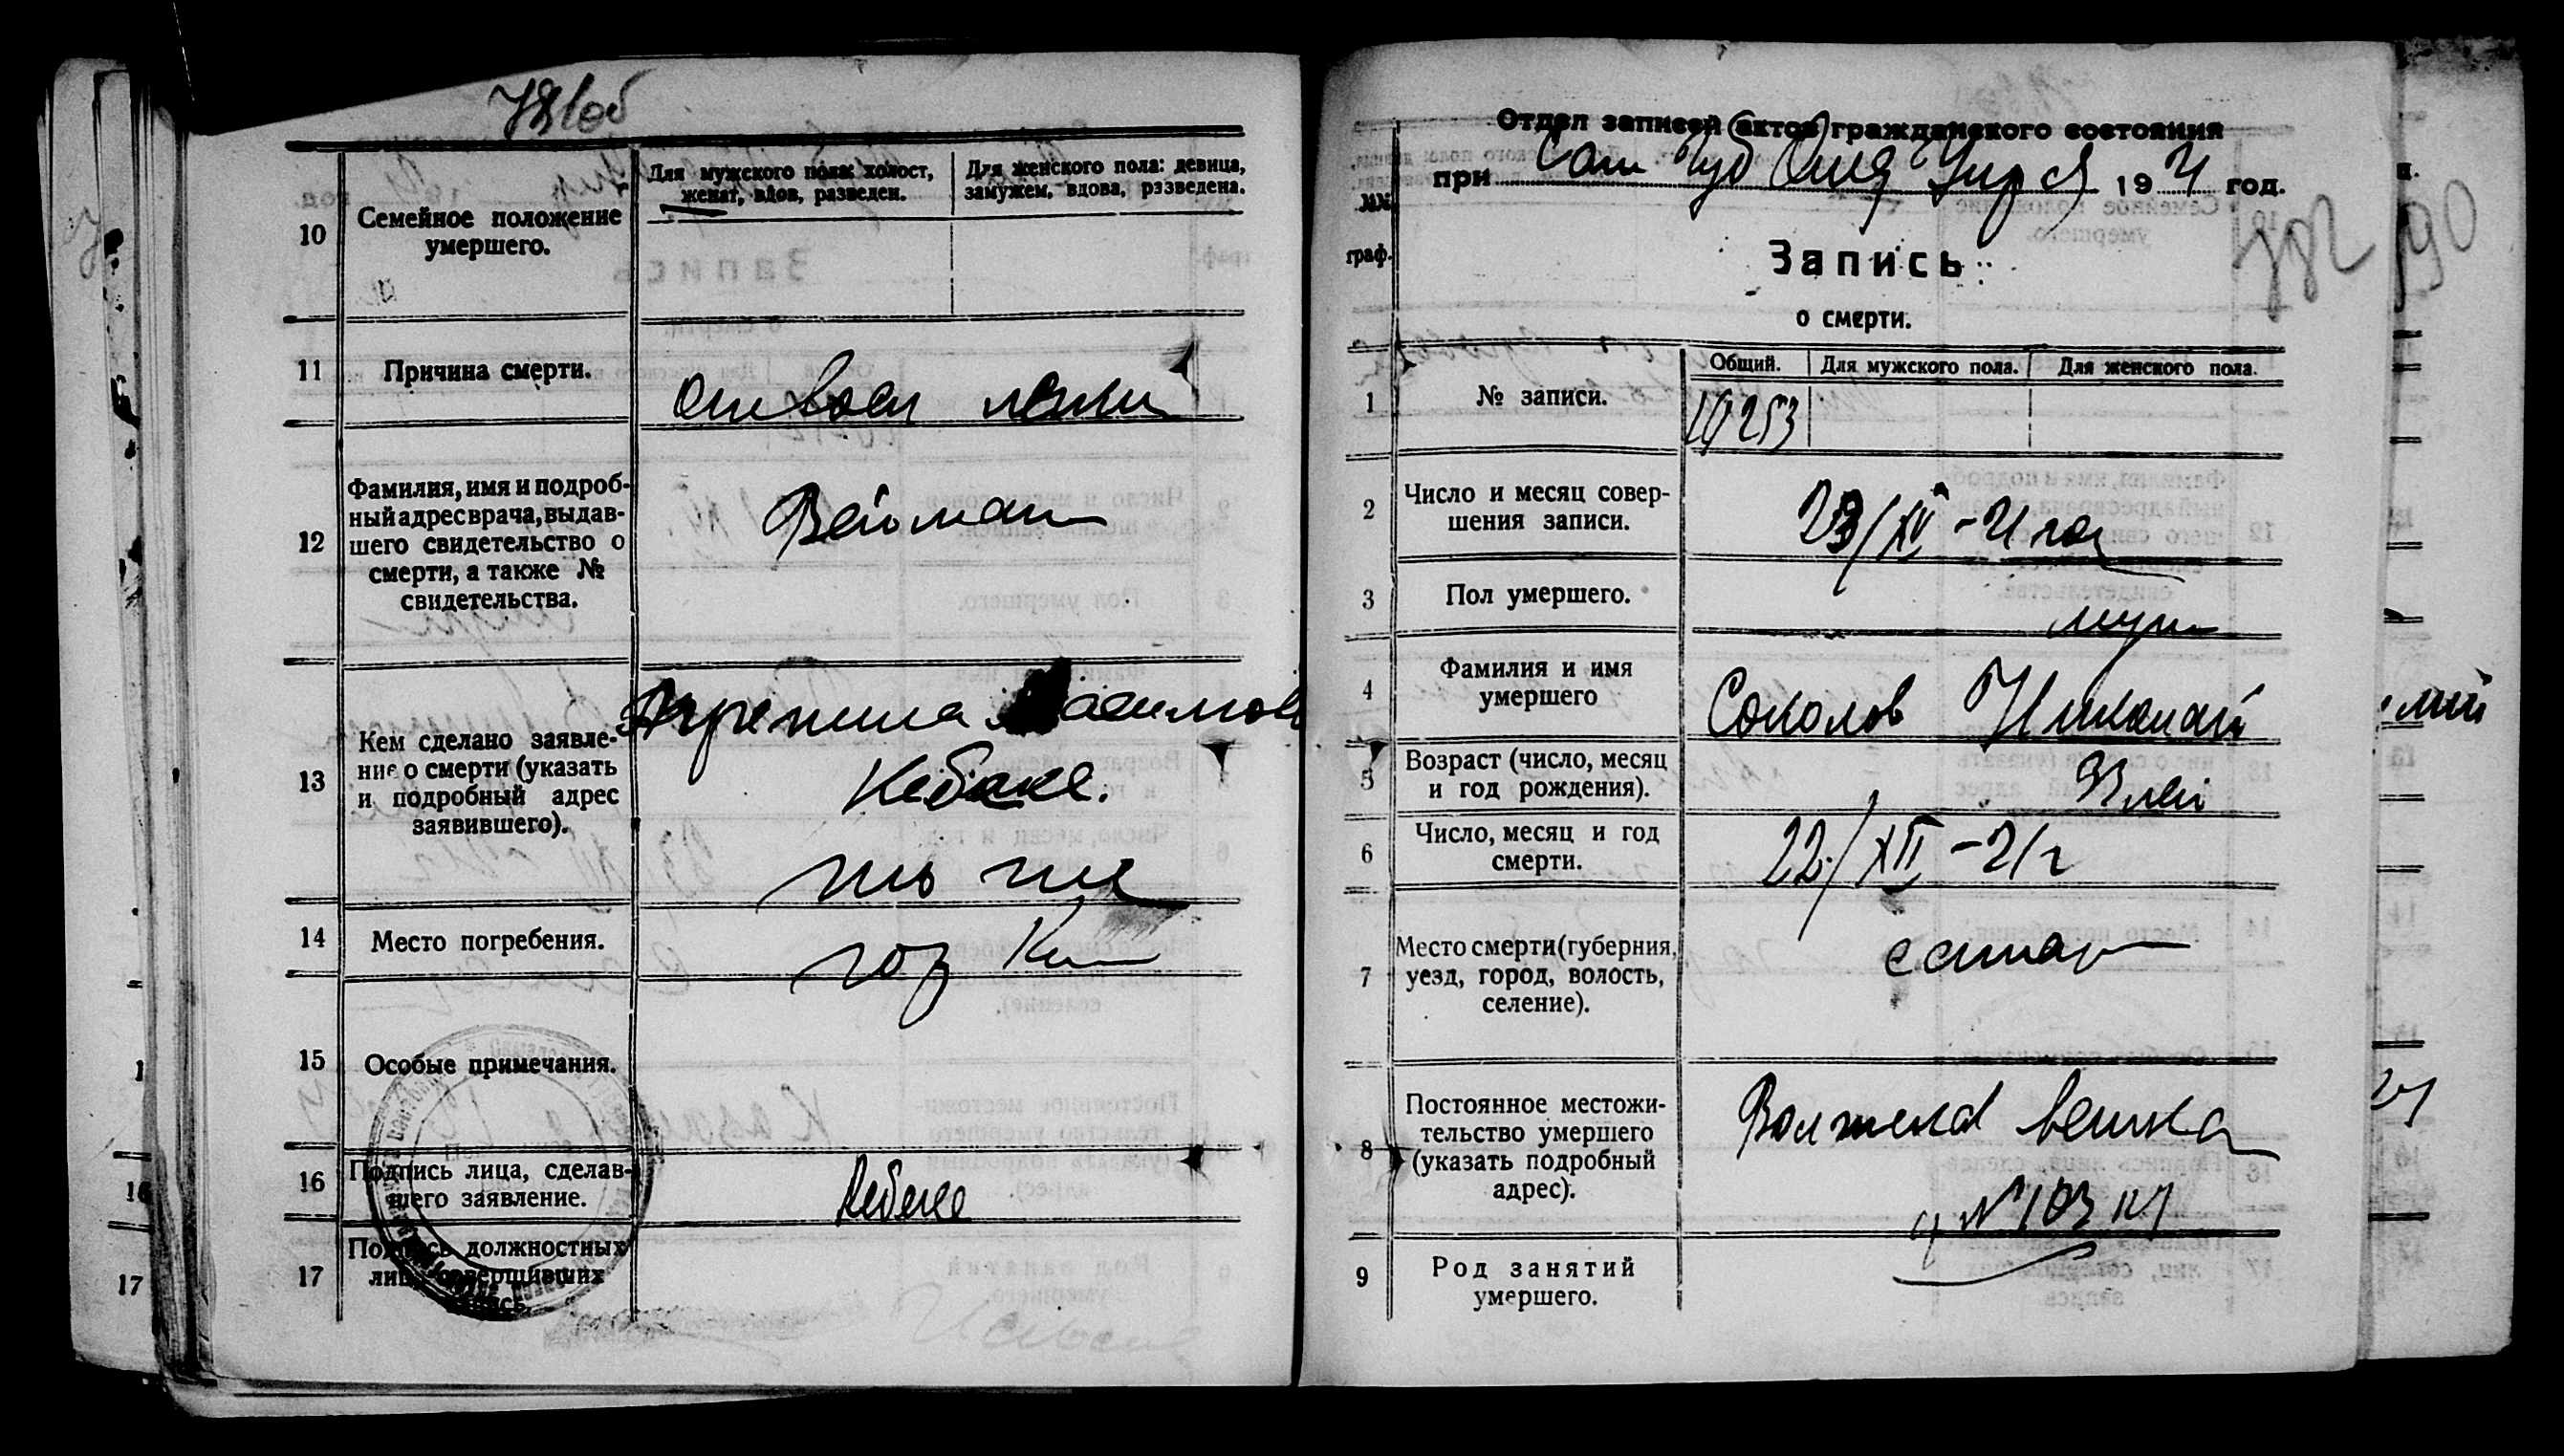 10
Семейное положение
умершего.
Для мужского пола: холост,
женат, вдов, разведен.
Для женского пола: девица,
замужем, вдова, разведена.
11
Причина смерти.
12
Фамилия, имя и подроб-
ный адрес врача, выдав-
шего свидетельство о
смерти, а также №
свидетельства.
Вейман
13
Кем сделано заявле-
ние о смерти (указать
и подробный адрес
заявившего).
Кебаке.
14
Место погребения.
гор
15
Особые примечания.
16
Подпись лица, сделав-
шего заявление.
17
Подпись должностных
лиц, совершивших
запись.
Отдел записей актов гражданского состояния
при Сам Губ 1921 год.
782
90
№№
граф.
Запись
о смерти.
1
№ записи.
Общий.
Для мужского пола.
Для женского пола.
10253
2
Число и месяц совер-
шения записи.
23/XII - 21 год
3
Пол умершего.
муж
4
Фамилия и имя
умершего
Соколов Николай
5
Возраст (число, месяц
и год рождения).
6
Число, месяц и год
смерти.
22/XII - 21 г
7
Место смерти (губерния,
уезд, город, волость,
селение).
8
Постоянное местожи-
тельство умершего
(указать подробный
адрес).
№ 103
9
Род занятий
умершего.
16
17